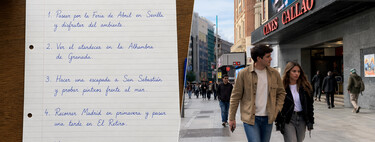 1. Paseo por la Feria de Abril en Sevilla
y disfrutar del ambiente.
2. Ver el atardecer en la Alhambra
de Granada.
3. Hacer una escapada a San Sebastián
y probar pintxos frente al mar.
4. Recorrer Madrid en primavera y pasar
una tarde en El Retiro.
CINES CALLAO